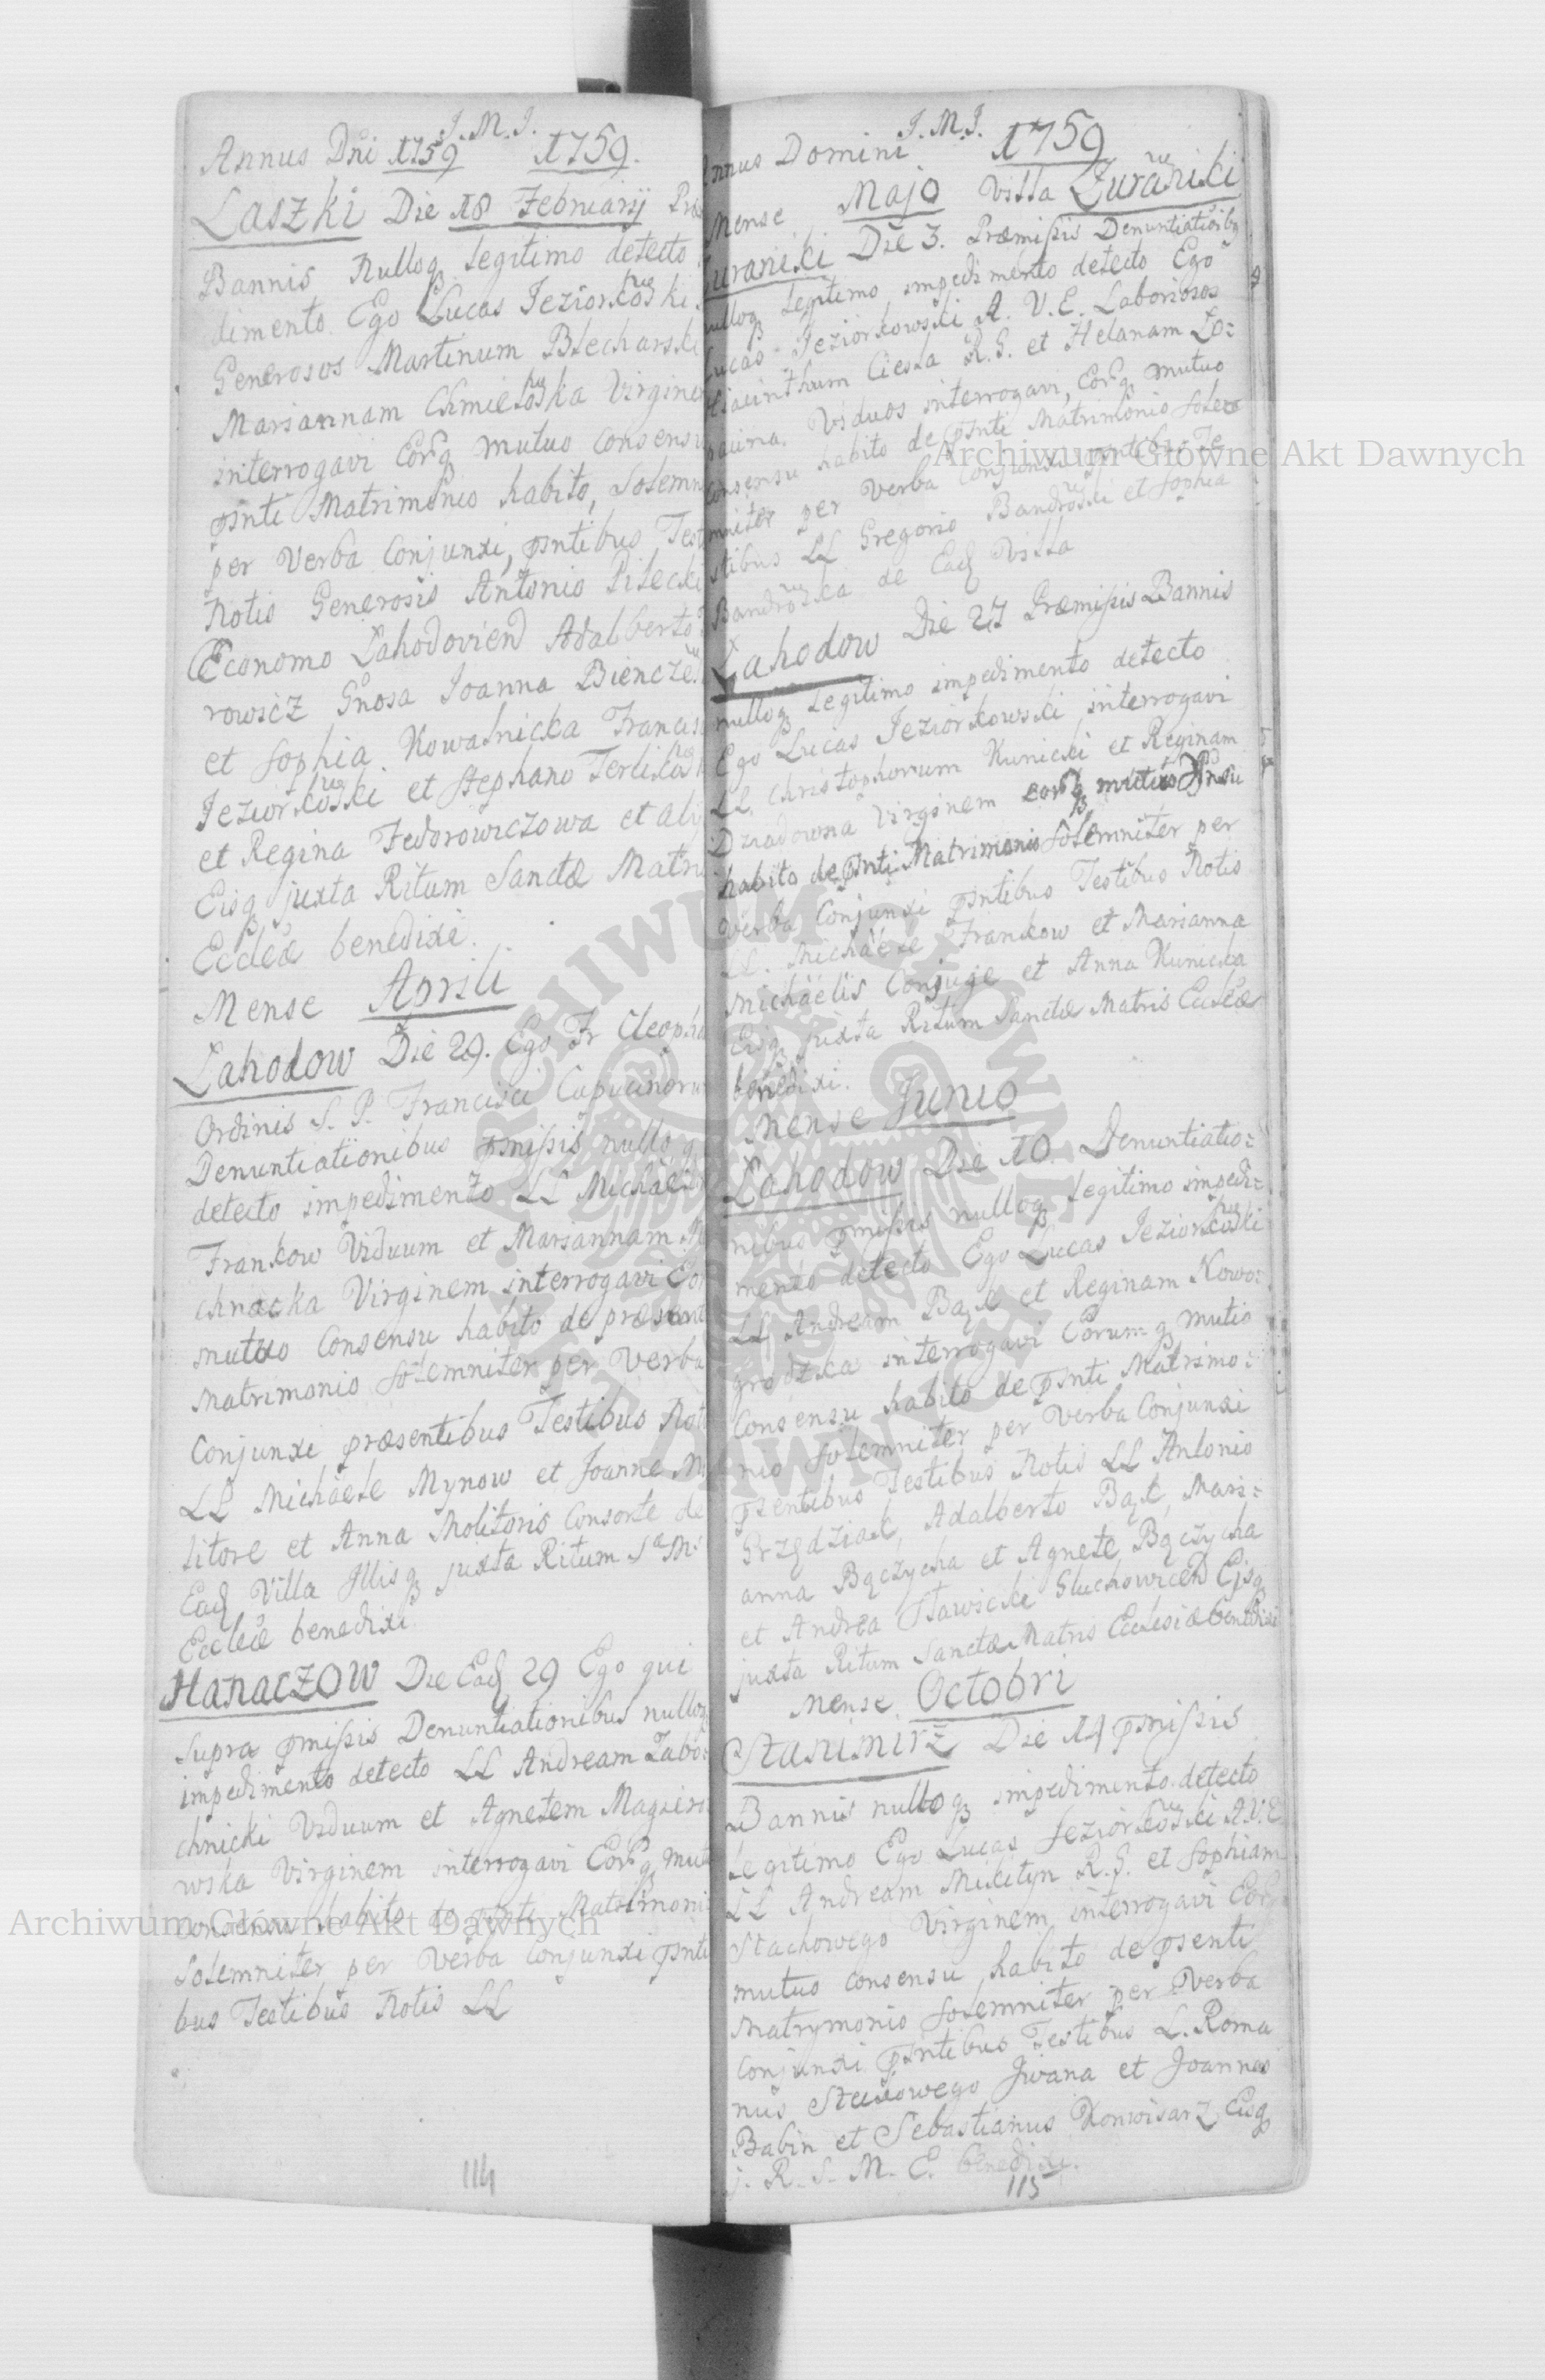 J. M. J.
Annus Dni 1759 1759.
Laszki Die 18 Februarij
Bannis Nulloq legitimo detecto
dimento Ego Lucas Jeziorkoski
Generosos Martinum Blecharski
Mariannam Chmieloska Virginem
interrogavi Eorq mutuo consensu
psnti Matrimonio habito, Solemni
per Verba Conjunxi, psntibus Test
Notis Generosis Antonio Pilecki
Economo Lahodoviens Adalberto
rowicz Gnosa Joanna
et Sophia Kowalnicka Francis
Jeziorkoski et Stephano
et Regina Fedorowiczowa et alij
Eisq juxta Ritum Sanctæ Matris
Ecclæ benedixi.
Mense Aprili
Lahodow Die 29. Ego Fr Cleopha
Ordinis S. P. Francisci Capucinorum
Denuntiationibus pmissis nulloq
detecto impedimento LL Michäel
Frankow Viduum et Mariannam
chnacka Virginem interrogavi Eor
mutuo Consensu habito de præsent
Matrimonio solemniter per Verba
Conjunxi præsentibus Testibus Not
LL Michäele Mynow et Joanne Mo
litore et Anna Molitoris Consorte de
Ead Villa Illisq juxta Ritum Sæ Ms
Ecclæ benedixi
Hanaczow Die Ead 29 Ego qui
supra pmissis Denuntiationibus nulloq
impedimento detecto LL Andream Zabo:
chnicki Viduum et Agnetem Magiero
wska Virginem interrogavi Eorq mutu
consensu habito de psnti Matrimoni
Solemniter per Verba Conjunxi psnti
bus Testibus Notis LL
114
J. M. J.
Annus Domini 1759
Mense Majo Villa Zuraniki
Zuraniki Die 3. Præmissis Denuntiationibq
nulloq legitimo impedimento detecto Ego
Lucas Jeziorkowski A. V. E. Laboriosos
Hiacinthum Ciesla R. G. et Helanam Lo:
Viduos interrogavi, Eorq mutuo
Consensu habito de psnti Matrimonio sole
mniter per Verba Conjunxi psntibus Te
stibus LL Gregorio Bandroski et Sophia
Bandroska de Ead Villa
Lahodow Die 27 Præmissis Bannis
nulloq legitimo impedimento detecto
Ego Lucas Jeziorkowski interrogavi
LL. Christophorum Kunicki et Reginam
Dziadowna Virginem eorq mutuo
habito de psnti Matrimonio Solemniter per
verba Conjunxi psntibus Testibus Notis
LL. Michäele Frankow et Marianna
Michäelis Conjuge et Anna Kunicka
Eisq juxta Ritum Sanctæ Matris Ecclæ
benedixi.
Mense Junio
Lahodow Die 10. Denuntiatio:
nibus pmissis nulloq legitimo impedi:
mento detecto Ego Lucas Jeziorkoski
LL Andream Bąk et Reginam Nowo:
grodzka interrogavi Eorum q mutuo
Consensu habito de psnti Matrimo:
nio solemniter per Verba Conjunxi
psentibus Testibus Notis LL Antonio
Grzędziak, Adalberto Bąk, Mari:
anna Bączycha et Agnete Bączycha
et Andrea Sławicki Eisq
juxta Ritum Sanctæ Matris Ecclesiæ benedixi
Mense Octobri
Stanimirz Die 14 pmissis
Bannis nulloq impedimento detecto
legitimo Ego Lucas Jeziorkoski A.V.E
LL Andream Mikityn R. G. et Sophiam
Stachowego Virginem interrogavi Eorq
mutuo consensu habito de psenti
Matrymonio Solemniter per Verba
conjunxi psntibus Testibus L. Roma
nus Stachowego Iwana et Joannes
Babin et Sebastianus Konwisarz Eisq
j. R. S. M. E. benedixi.
115
Archiwum Główne Akt Dawnych
Archiwum Główne Akt Dawnych
ARCHIWUM GŁÓWNE AKT DAWNYCH